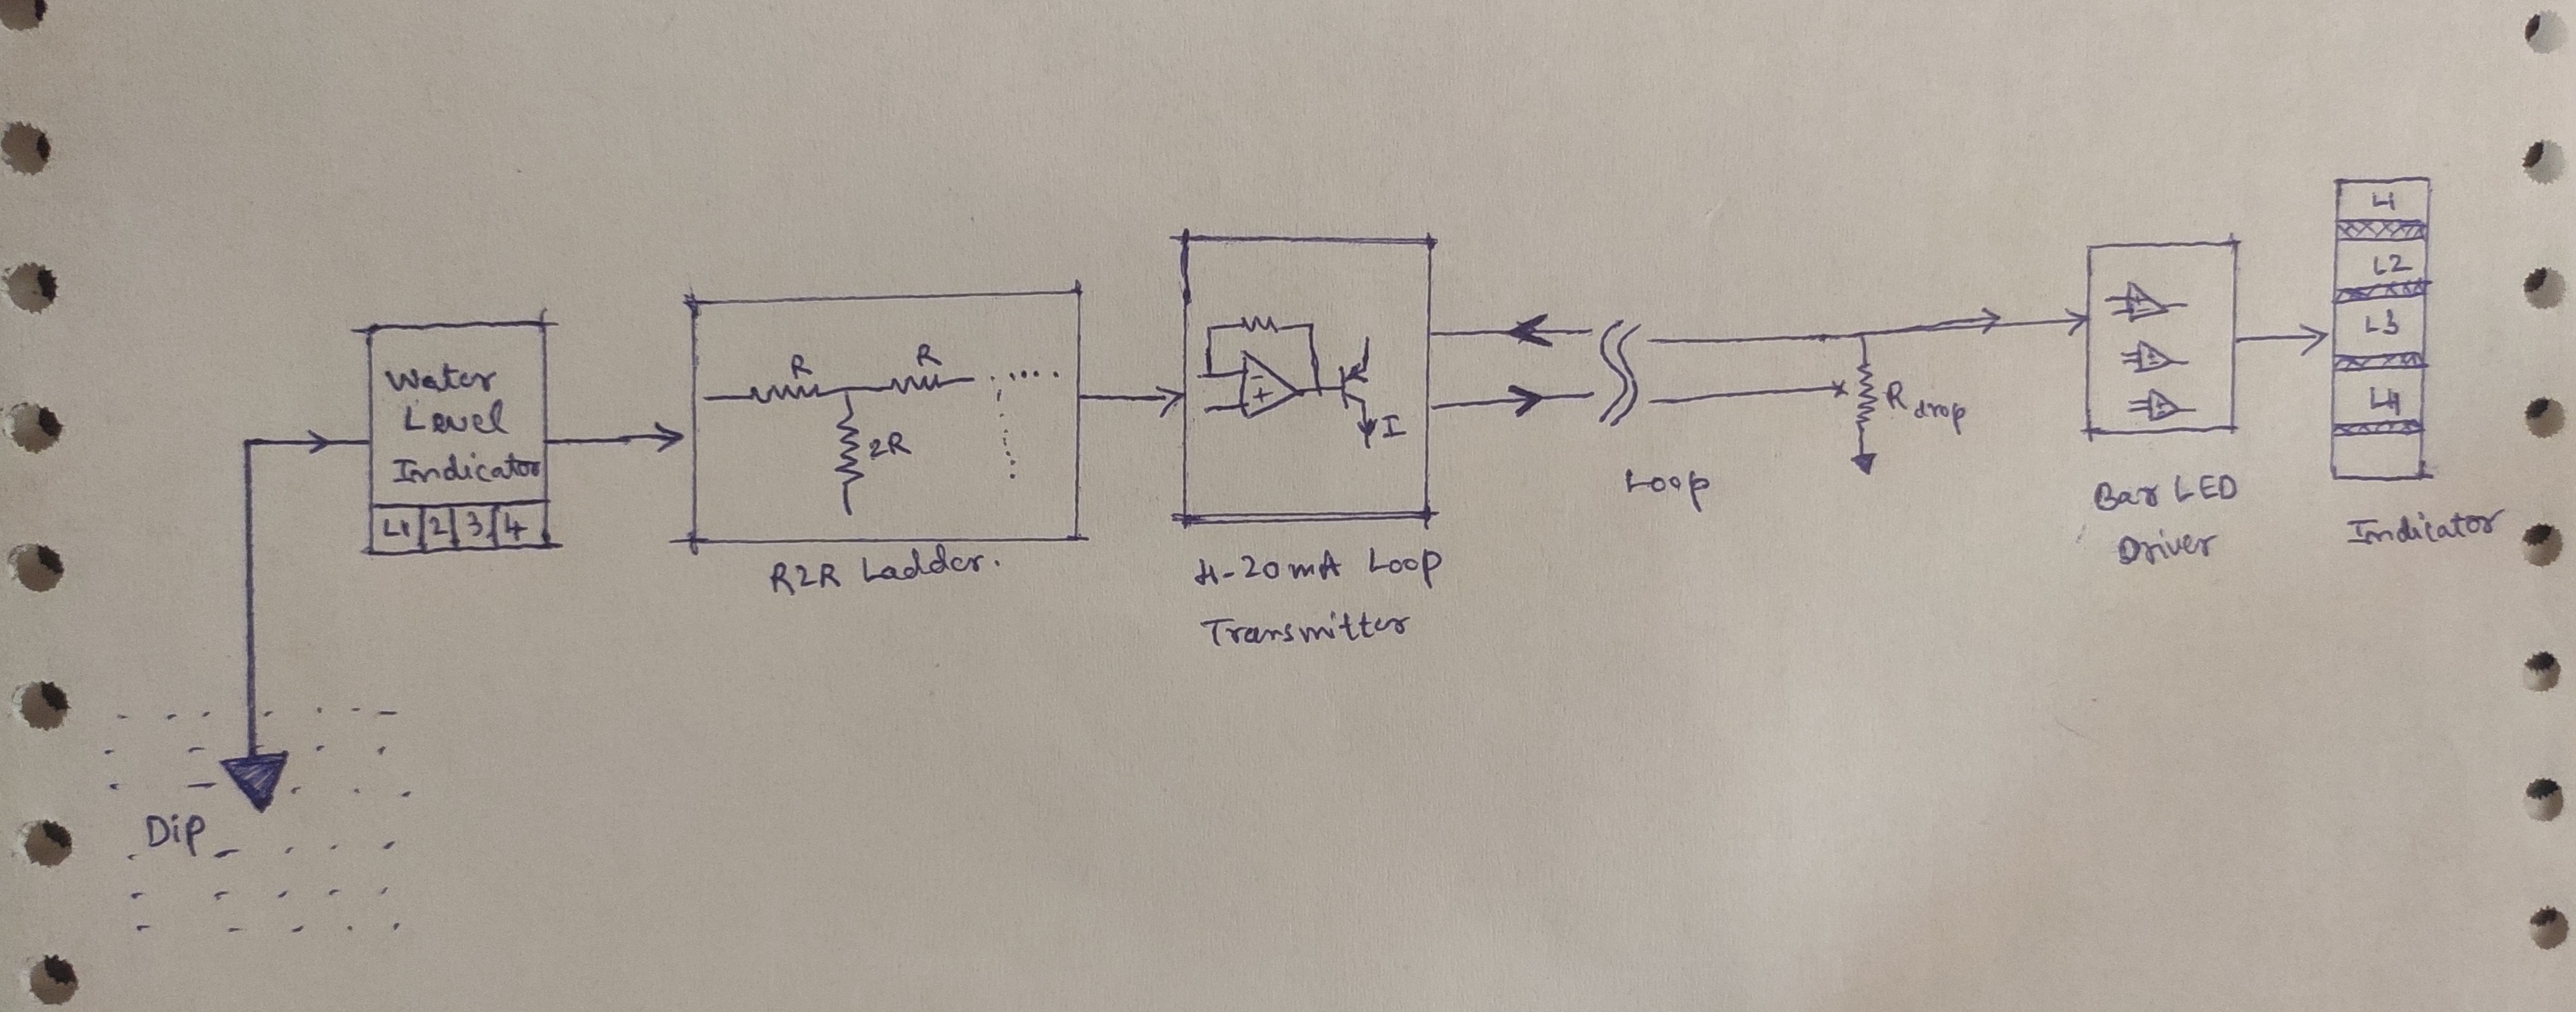 Water
Level
Indicator
L1 2 3 4
Dip
R
R
2R
R2R Ladder.
I
4-20mA Loop
Transmitter
Loop
R drop
Bar LED
Driver
L1
L2
L3
L4
Indicator